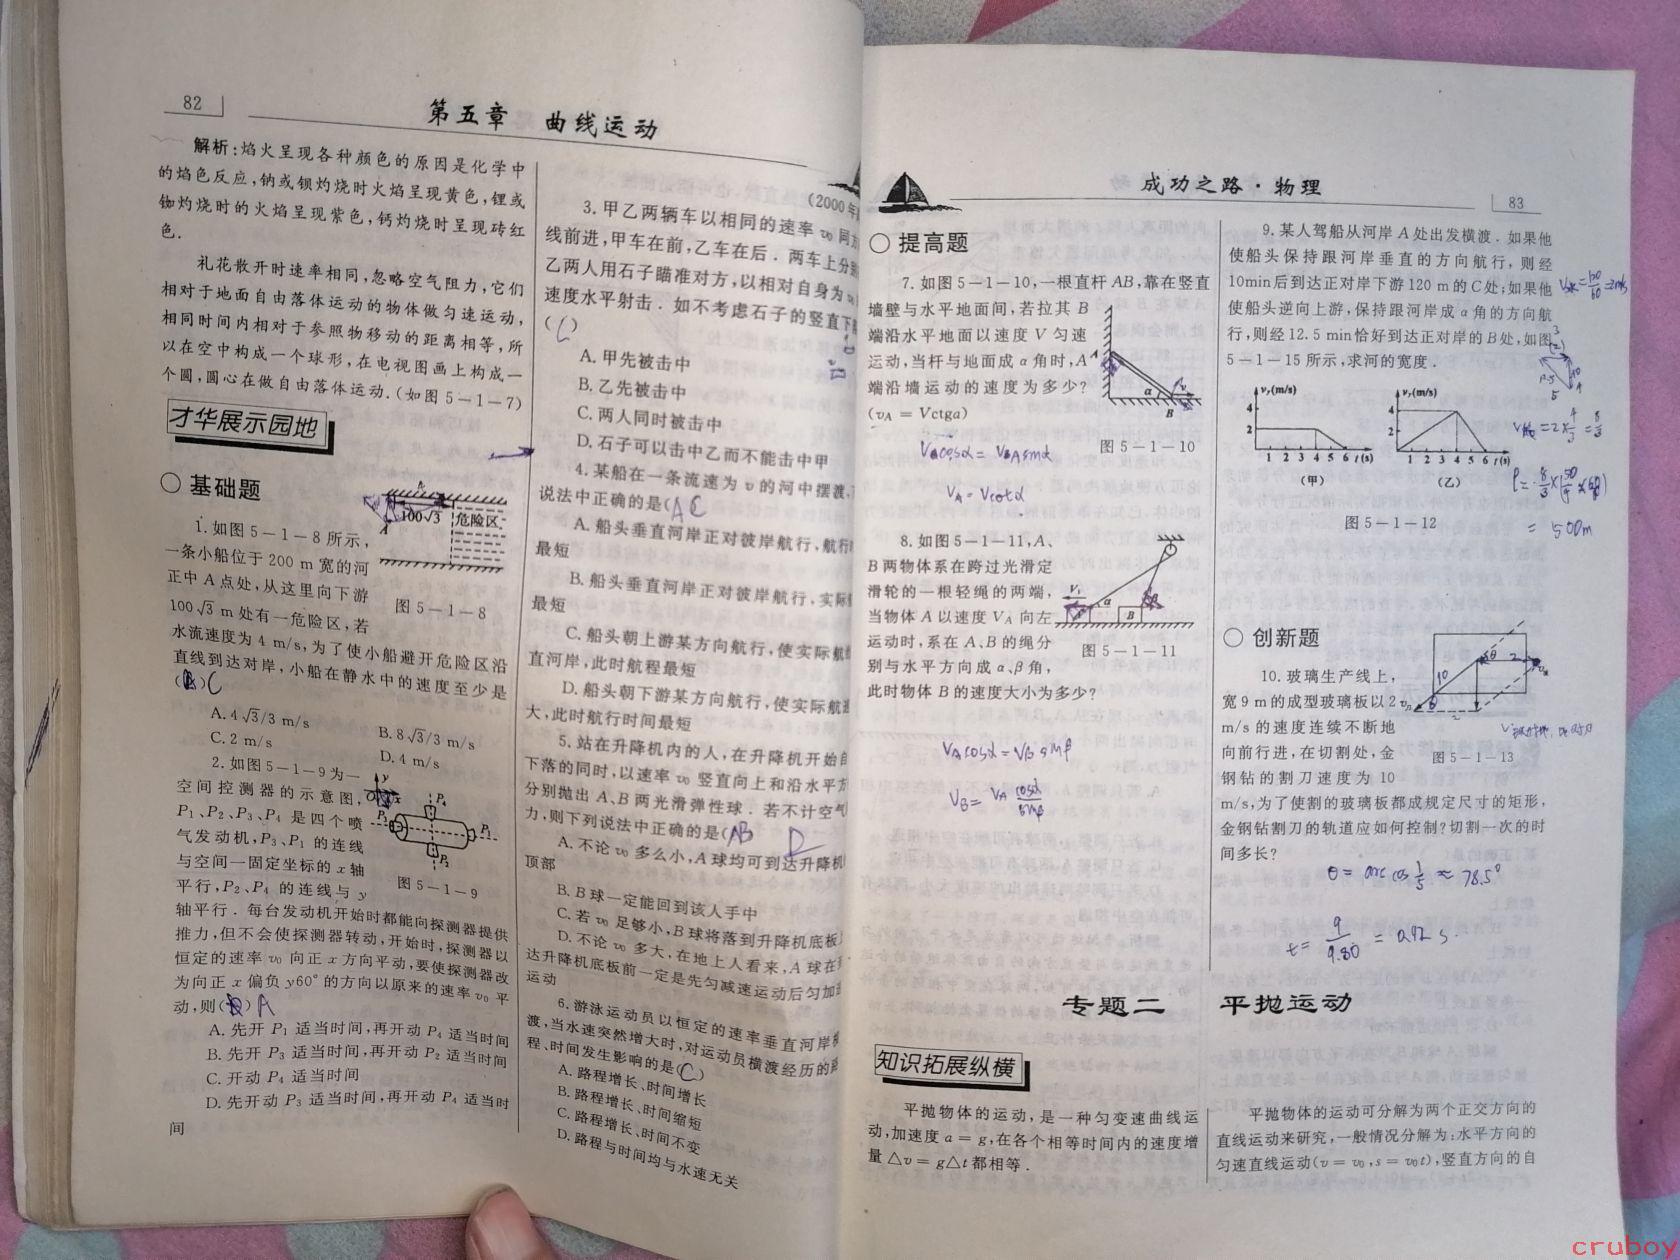 82
第五章 曲线运动
解析:焰火呈现各种颜色的原因是化学中
的焰色反应,钠或钡灼烧时火焰呈现黄色,锂或
铷灼烧时的火焰呈现紫色,钙灼烧时呈现砖红
色.
礼花散开时速率相同,忽略空气阻力,它们
相对于地面自由落体运动的物体做匀速运动,
相同时间内相对于参照物移动的距离相等,所
以在空中构成一个球形,在电视图画上构成一
个圆,圆心在做自由落体运动.(如图5-1-7)
才华展示园地
○ 基础题
1.如图5-1-8所示,
一条小船位于200 m宽的河
正中A点处,从这里向下游
100√3 m处有一危险区,若
水流速度为4 m/s,为了使小船避开危险区沿
直线到达对岸,小船在静水中的速度至少是
( )C
A.4√3/3 m/s
B.8√3/3 m/s
C.2 m/s
D.4 m/s
A
100√3
危险区
图5-1-8
2.如图5-1-9为一
空间控测器的示意图,
P₁、P₂、P₃、P₄是四个喷
气发动机,P₃、P₁的连线
与空间一固定坐标的x轴
平行,P₂、P₄的连线与y
轴平行.每台发动机开始时都能向探测器提供
推力,但不会使探测器转动,开始时,探测器以
恒定的速率v₀向正x方向平动,要使探测器改
为向正x偏负y60°的方向以原来的速率v₀平
动,则( )A
A.先开P₁适当时间,再开动P₄适当时间
B.先开P₃适当时间,再开动P₂适当时间
C.开动P₄适当时间
D.先开动P₃适当时间,再开动P₄适当时
间
y
x
P₄
P₃
P₁
P₂
图5-1-9
(2000年
3.甲乙两辆车以相同的速率v₀同
线前进,甲车在前,乙车在后.两车上分
乙两人用石子瞄准对方,以相对自身为v
速度水平射击.如不考虑石子的竖直下
(C)
A.甲先被击中
B.乙先被击中
C.两人同时被击中
D.石子可以击中乙而不能击中甲
4.某船在一条流速为v的河中摆渡,
说法中正确的是(AC
A.船头垂直河岸正对彼岸航行,航行
最短
B.船头垂直河岸正对彼岸航行,实际
最短
C.船头朝上游某方向航行,使实际航
直河岸,此时航程最短
D.船头朝下游某方向航行,使实际航
大,此时航行时间最短
5.站在升降机内的人,在升降机开始自
下落的同时,以速率v₀竖直向上和沿水平方
分别抛出A、B两光滑弹性球.若不计空气
力,则下列说法中正确的是(AB D
A.不论v₀多么小,A球均可到达升降机
顶部
B.B球一定能回到该人手中
C.若v₀足够小,B球将落到升降机底板
D.不论v₀多大,在地上人看来,A球在
达升降机底板前一定是先匀减速运动后匀加
运动
6.游泳运动员以恒定的速率垂直河岸横
渡,当水速突然增大时,对运动员横渡经历的路
程、时间发生影响的是(C)
A.路程增长、时间增长
B.路程增长、时间缩短
C.路程增长、时间不变
D.路程与时间均与水速无关
成功之路·物理
83
○ 提高题
7.如图5-1-10,一根直杆AB,靠在竖直
墙壁与水平地面间,若拉其B
端沿水平地面以速度V匀速
运动,当杆与地面成α角时,A
端沿墙运动的速度为多少?
(vA = Vctgα)
A
α
v
B
图5-1-10
VBcosα = VAsinα
VA = Vcotα
8.如图5-1-11,A、
B两物体系在跨过光滑定
滑轮的一根轻绳的两端,
当物体A以速度VA向左
运动时,系在A、B的绳分
别与水平方向成α、β角,
此时物体B的速度大小为多少?
V₁
α
B
图5-1-11
VAcosα = VB sinβ
VB = VA cosα/sinβ
9.某人驾船从河岸A处出发横渡.如果他
使船头保持跟河岸垂直的方向航行,则经
10min后到达正对岸下游120 m的C处;如果他
使船头逆向上游,保持跟河岸成α角的方向航
行,则经12.5 min恰好到达正对岸的B处,如图
5-1-15所示,求河的宽度.
vy(m/s)
4
2
1 2 3 4 5 6 t(s)
(甲)
vy(m/s)
4
2
1 2 3 4 5 6 t(s)
(乙)
图5-1-12
= 2 × 4/3 = 8/3
= 500m
○ 创新题
10.玻璃生产线上,
宽9 m的成型玻璃板以2
m/s的速度连续不断地
向前行进,在切割处,金
钢钻的割刀速度为10
m/s,为了使割的玻璃板都成规定尺寸的矩形,
金钢钻割刀的轨道应如何控制?切割一次的时
间多长?
10
θ
2
图5-1-13
θ = arc cos 1/5 ≈ 78.5°
t = 9/9.80 = 0.92 s.
专题二 平抛运动
知识拓展纵横
平抛物体的运动,是一种匀变速曲线运
动,加速度a = g,在各个相等时间内的速度增
量△v = g△t都相等.
平抛物体的运动可分解为两个正交方向的
直线运动来研究,一般情况分解为:水平方向的
匀速直线运动(v = v₀,s = v₀t),竖直方向的自
cruboy